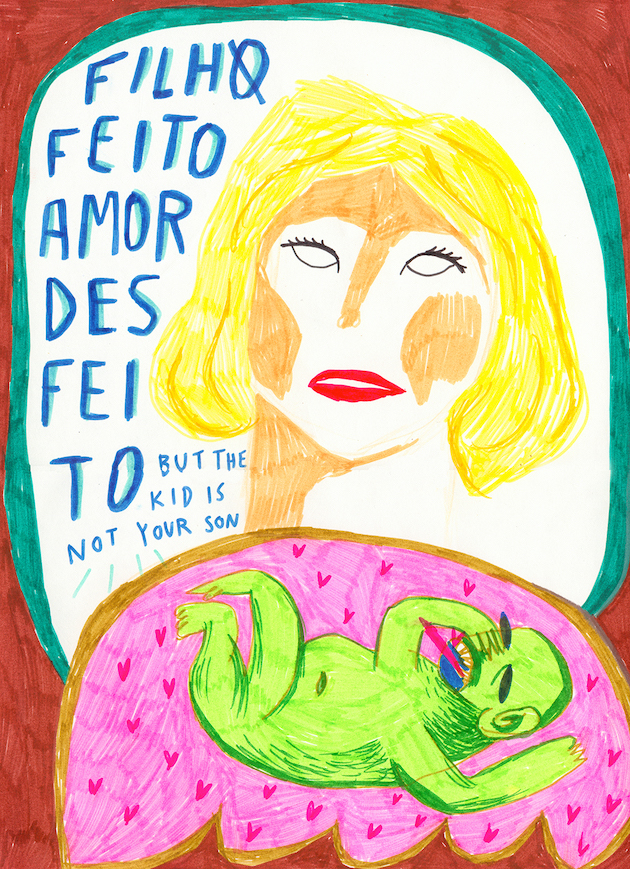 FILHO
FEITO
AMOR
DES
FEI
TO
BUT THE
KID IS
NOT YOUR SON